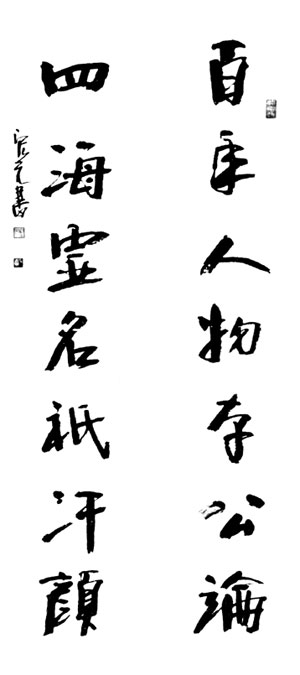 百年人物存公論
四海虛名衹汗顏